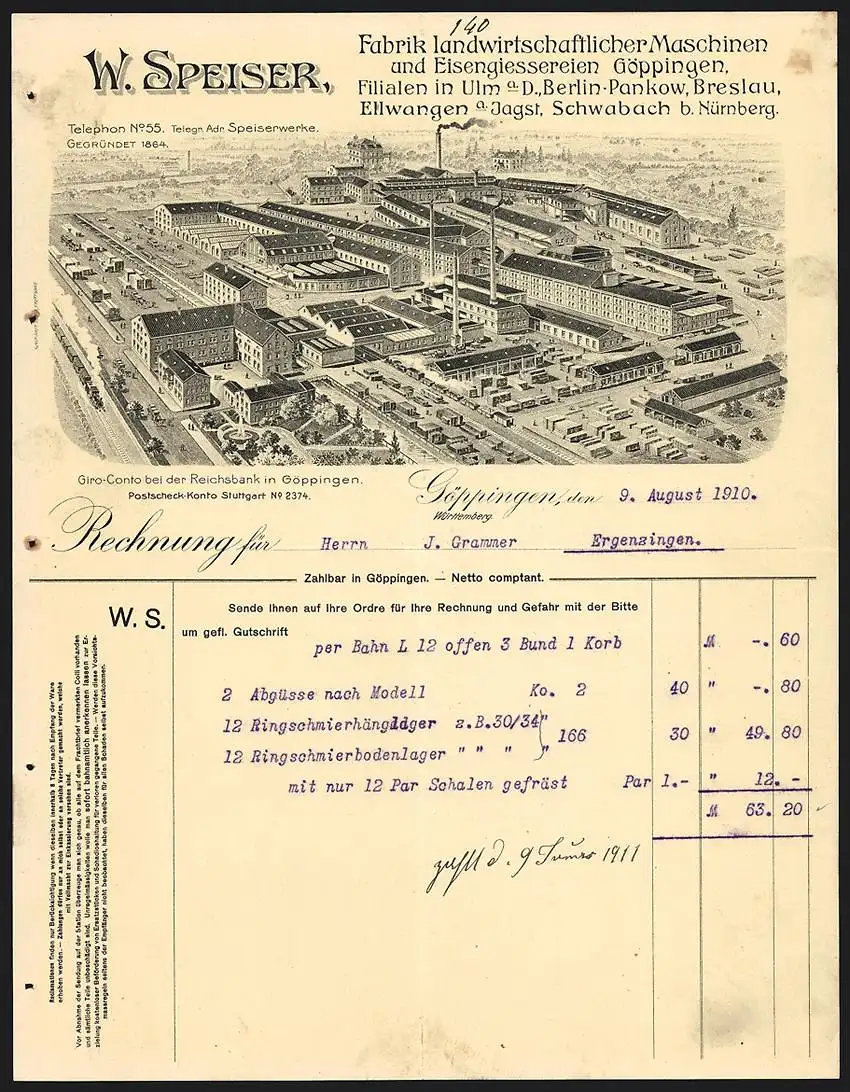 140
W. SPEISER,
Fabrik landwirtschaftlicher Maschinen
und Eisengiessereien Göppingen,
Filialen in Ulm a.D., Berlin-Pankow, Breslau,
Ellwangen a. Jagst, Schwabach b. Nürnberg.
Telephon No 55. Telegr. Adr. Speiserwerke.
GEGRÜNDET 1864.
Giro-Conto bei der Reichsbank in Göppingen.
Postscheck-Konto Stuttgart No 2374.
Göppingen, den 9. August 1910.
Württemberg.
Rechnung für Herrn J. Grammer Ergenzingen.
Zahlbar in Göppingen. — Netto comptant.
W. S.
Sende Ihnen auf Ihre Ordre für Ihre Rechnung und Gefahr mit der Bitte
um gefl. Gutschrift
per Bahn L 12 offen 3 Bund 1 Korb M -. 60
2 Abgüsse nach Modell Ko. 2 40 " -. 80
12 Ringschmierhänglager z.B.30/34" 166 30 " 49. 80
12 Ringschmierbodenlager " " "
mit nur 12 Par Schalen gefräst Par 1.- " 12. -
M 63. 20
d. 9 1911
Reclamationen finden nur Berücksichtigung wenn dieselben innerhalb 8 Tagen nach Empfang der Ware
erhoben werden. — Zahlungen dürfen nur an mich selbst oder an solche Vertreter gemacht werden, welche
mit Vollmacht zur Einkassierung versehen sind.
Vor Abnahme der Sendung auf der Station überzeuge man sich genau, ob alle auf dem Frachtbrief vermerkten Colli vorhanden
und sämtliche Teile unbeschädigt sind. Unregelmässigkeiten wolle man sofort bahnamtlich anerkennen lassen zur Er-
zielung kostenloser Beförderung von Ersatzstücken und Schadloshaltung für verloren gegangene Teile. — Werden diese Vorsichts-
massregeln seitens der Empfänger nicht beobachtet, haben dieselben für allen Schaden selbst aufzukommen.